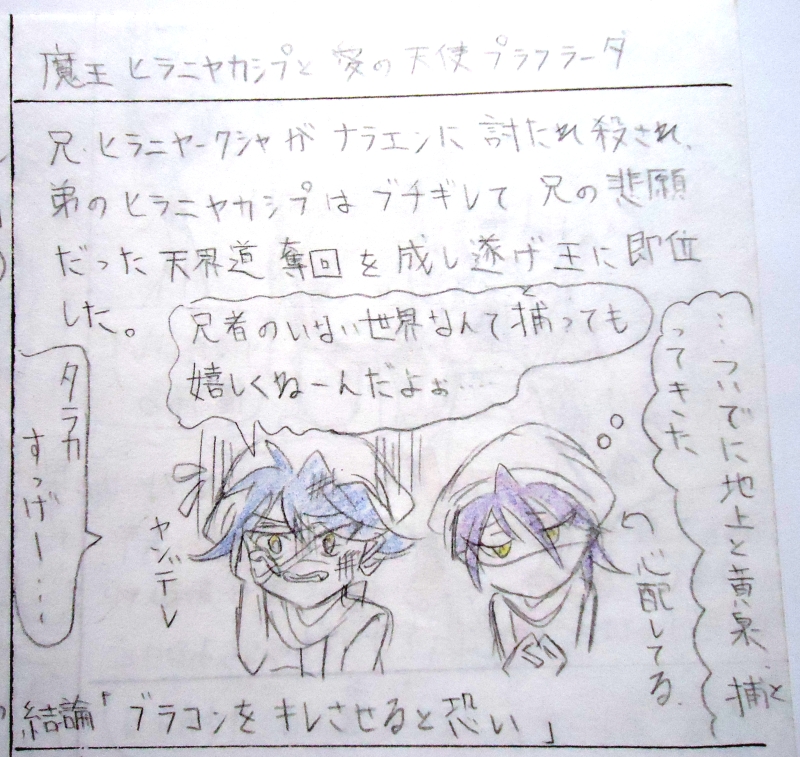 魔王 ヒラニヤカシプと 愛の天使 プラフラーダ
兄・ヒラニヤークシャが ナラエンに 討たれ 殺され、
弟のヒラニヤカシプは ブチギレて 兄の悲願
だった 天界道 奪回を 成し遂げ 王に 即位
した。
兄者のいない世界なんて捕っても
と
嬉しくねーんだよぉ…
…ついでに地上と黄泉 捕と
ってきた
タラカ
すっげー…
ヤンデレ
心配してる
結論「ブラコンをキレさせると恐い」